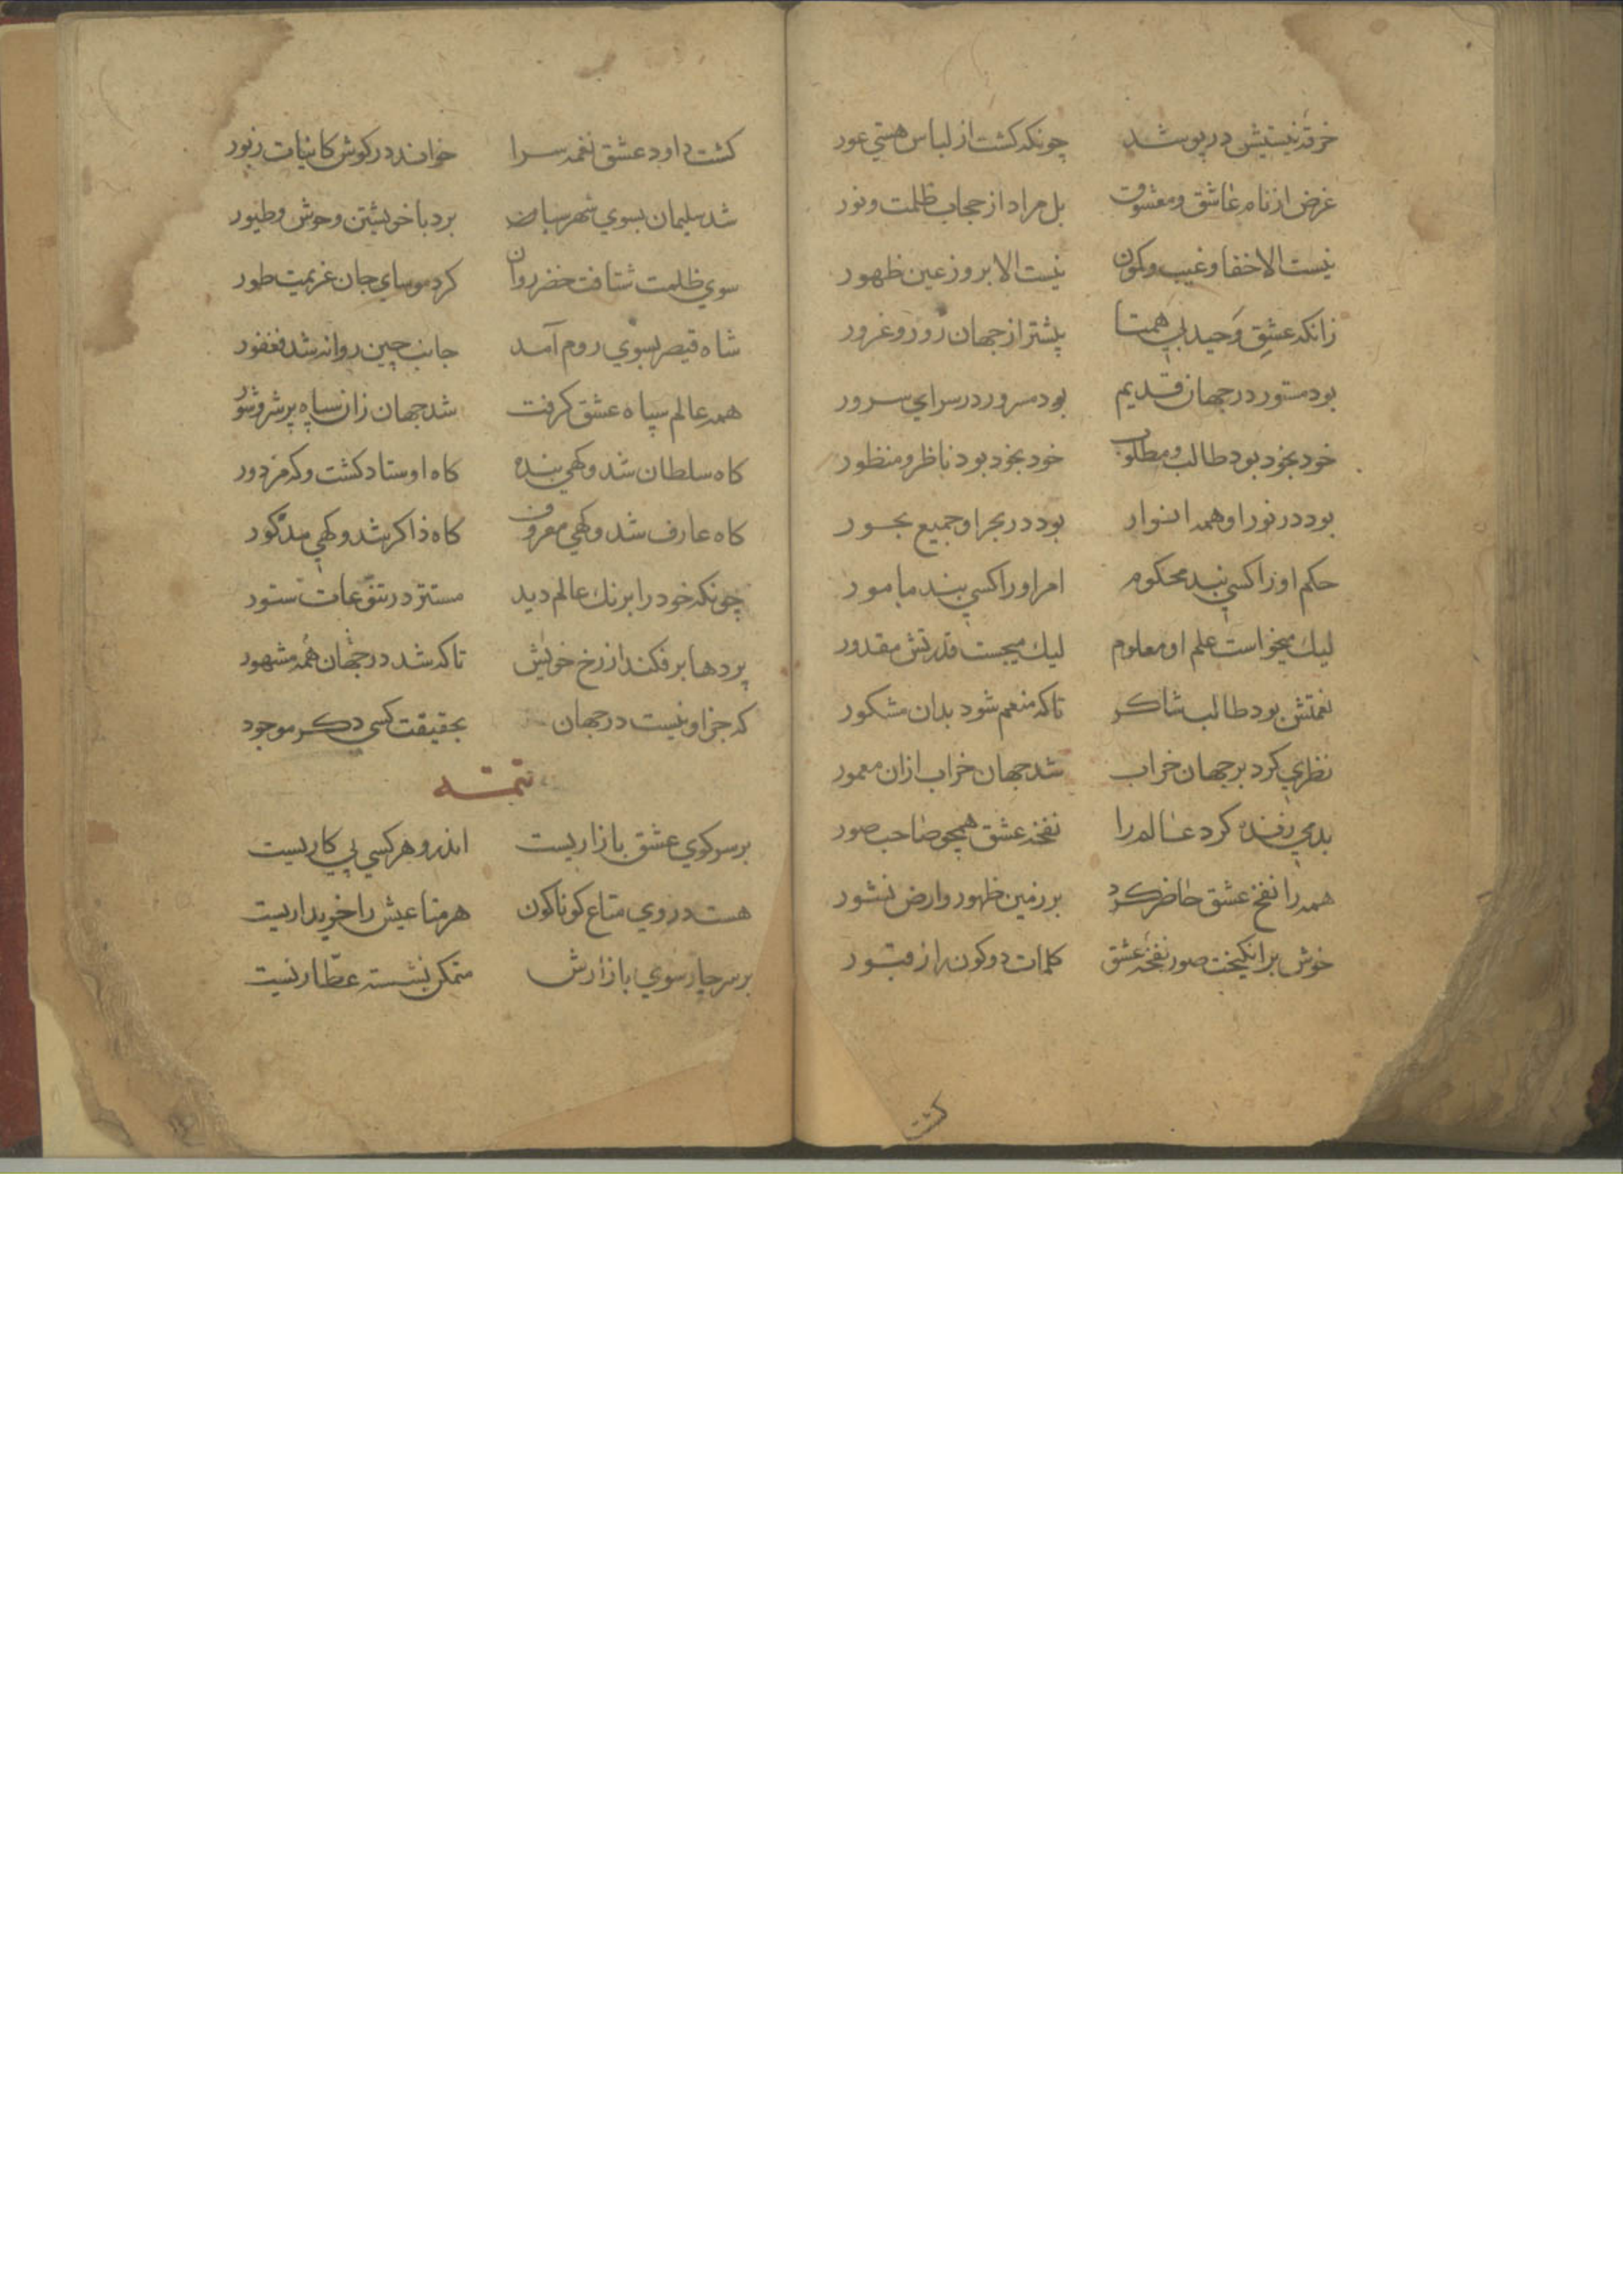 خرقه نیستیش در پوشد چونکه کشت از لباس هستي عور
غرض از نام عاشق و معشوق بل مراد از حجاب ظلمت و نور
نیست الا خفا و غیب و کمون نیست الا بروز عین ظهور
زانکه عشق وحید بي همتا پیشتر از جهان زور و غرور
بود مستور در جهان قدیم بود مسرور در سراي سرور
خود بخود بود طالب و مطلوب خود بخود بود ناظر و منظور
بود در نور او همه انوار بود در بحر او جمیع بحور
حکم او را کسي نبد محکوم امر او را کسي نبد مامور
لیك میخواست علم او معلوم لیك میجست قدرتش مقدور
نعمتش بود طالب شاکر تا که منعم شود بدان مشکور
نظري کرد بر جهان خراب شد جهان خراب ازان معمور
بدمي زنده کرد عالم را نفخه عشق همچو صاحب صور
همه را نفخ عشق حاضر کرد بر زمین ظهور و ارض نشور
خوش بر انکیخت صور نفخه عشق کلمات دو کون از قبور
کشت
کشت داود عشق نغمه سرا خواند در کوش کاینات زبور
شد سلیمان بسوي شهر سبا برد با خویشتن وحوش و طیور
سوي ظلمت شتافت خضر روان کرد موساي جان عزیمت طور
شاه قیصر بسوي روم آمد جانب چین روانه شد فغفور
همه عالم سپاه عشق کرفت شد جهان زان سپاه پر شر و شور
کاه سلطان شد و کهي بنده کاه اوستاد کشت و که مزدور
کاه عارف شد و کهي معروف کاه ذاکر شد و کهي مذکور
چونکه خود را برنك عالم دید مستتر در تنوعات ستور
پردها بر فکند از رخ خویش تا که شد در جهان همه مشهور
که جز او نیست در جهان بحقیقت کسي دکر موجود
تتمه
بر سر کوي عشق بازاریست اندرو هر کسي پي کاریست
هست در وي متاع کوناکون هر متاعیش را خریداریست
بر سر چار سوي بازارش متمکن نشسته عطاریست